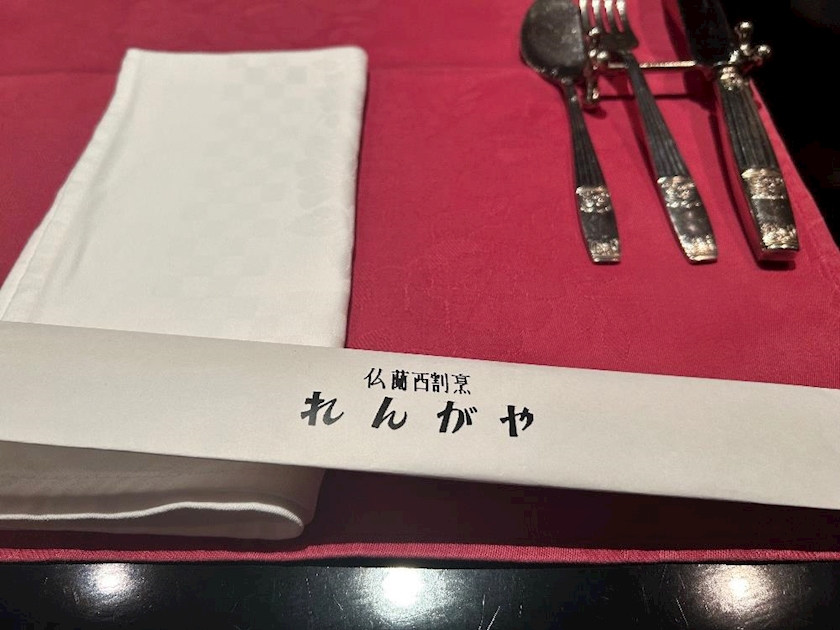 仏蘭西割烹
れんがや